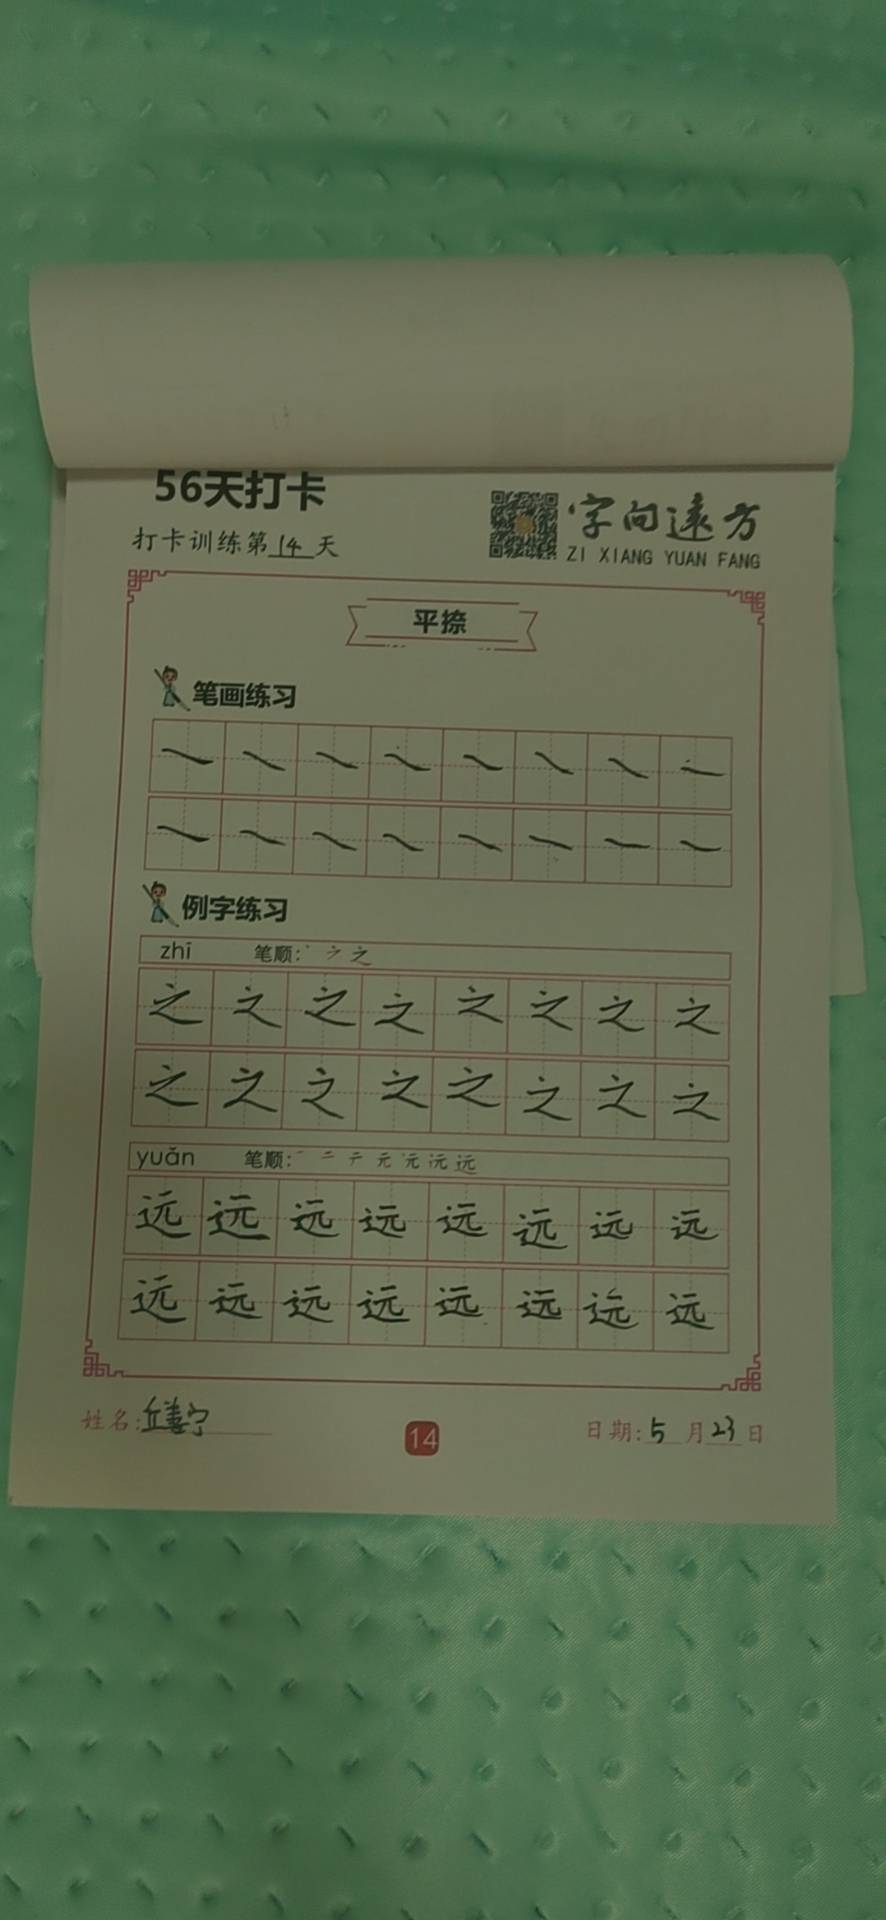 56天打卡
字向遠方
打卡训练第14天
ZI XIANG YUAN FANG
平捺
笔画练习
例字练习
zhī 笔顺: 之
之 之 之 之 之 之 之 之
之 之 之 之 之 之 之 之
yuǎn 笔顺: 一 二 テ 元 元 沅 远
远 远 远 远 远 远 远 远
远 远 远 远 远 远 远 远
姓名: 丘善宁
14
日期: 5月23日